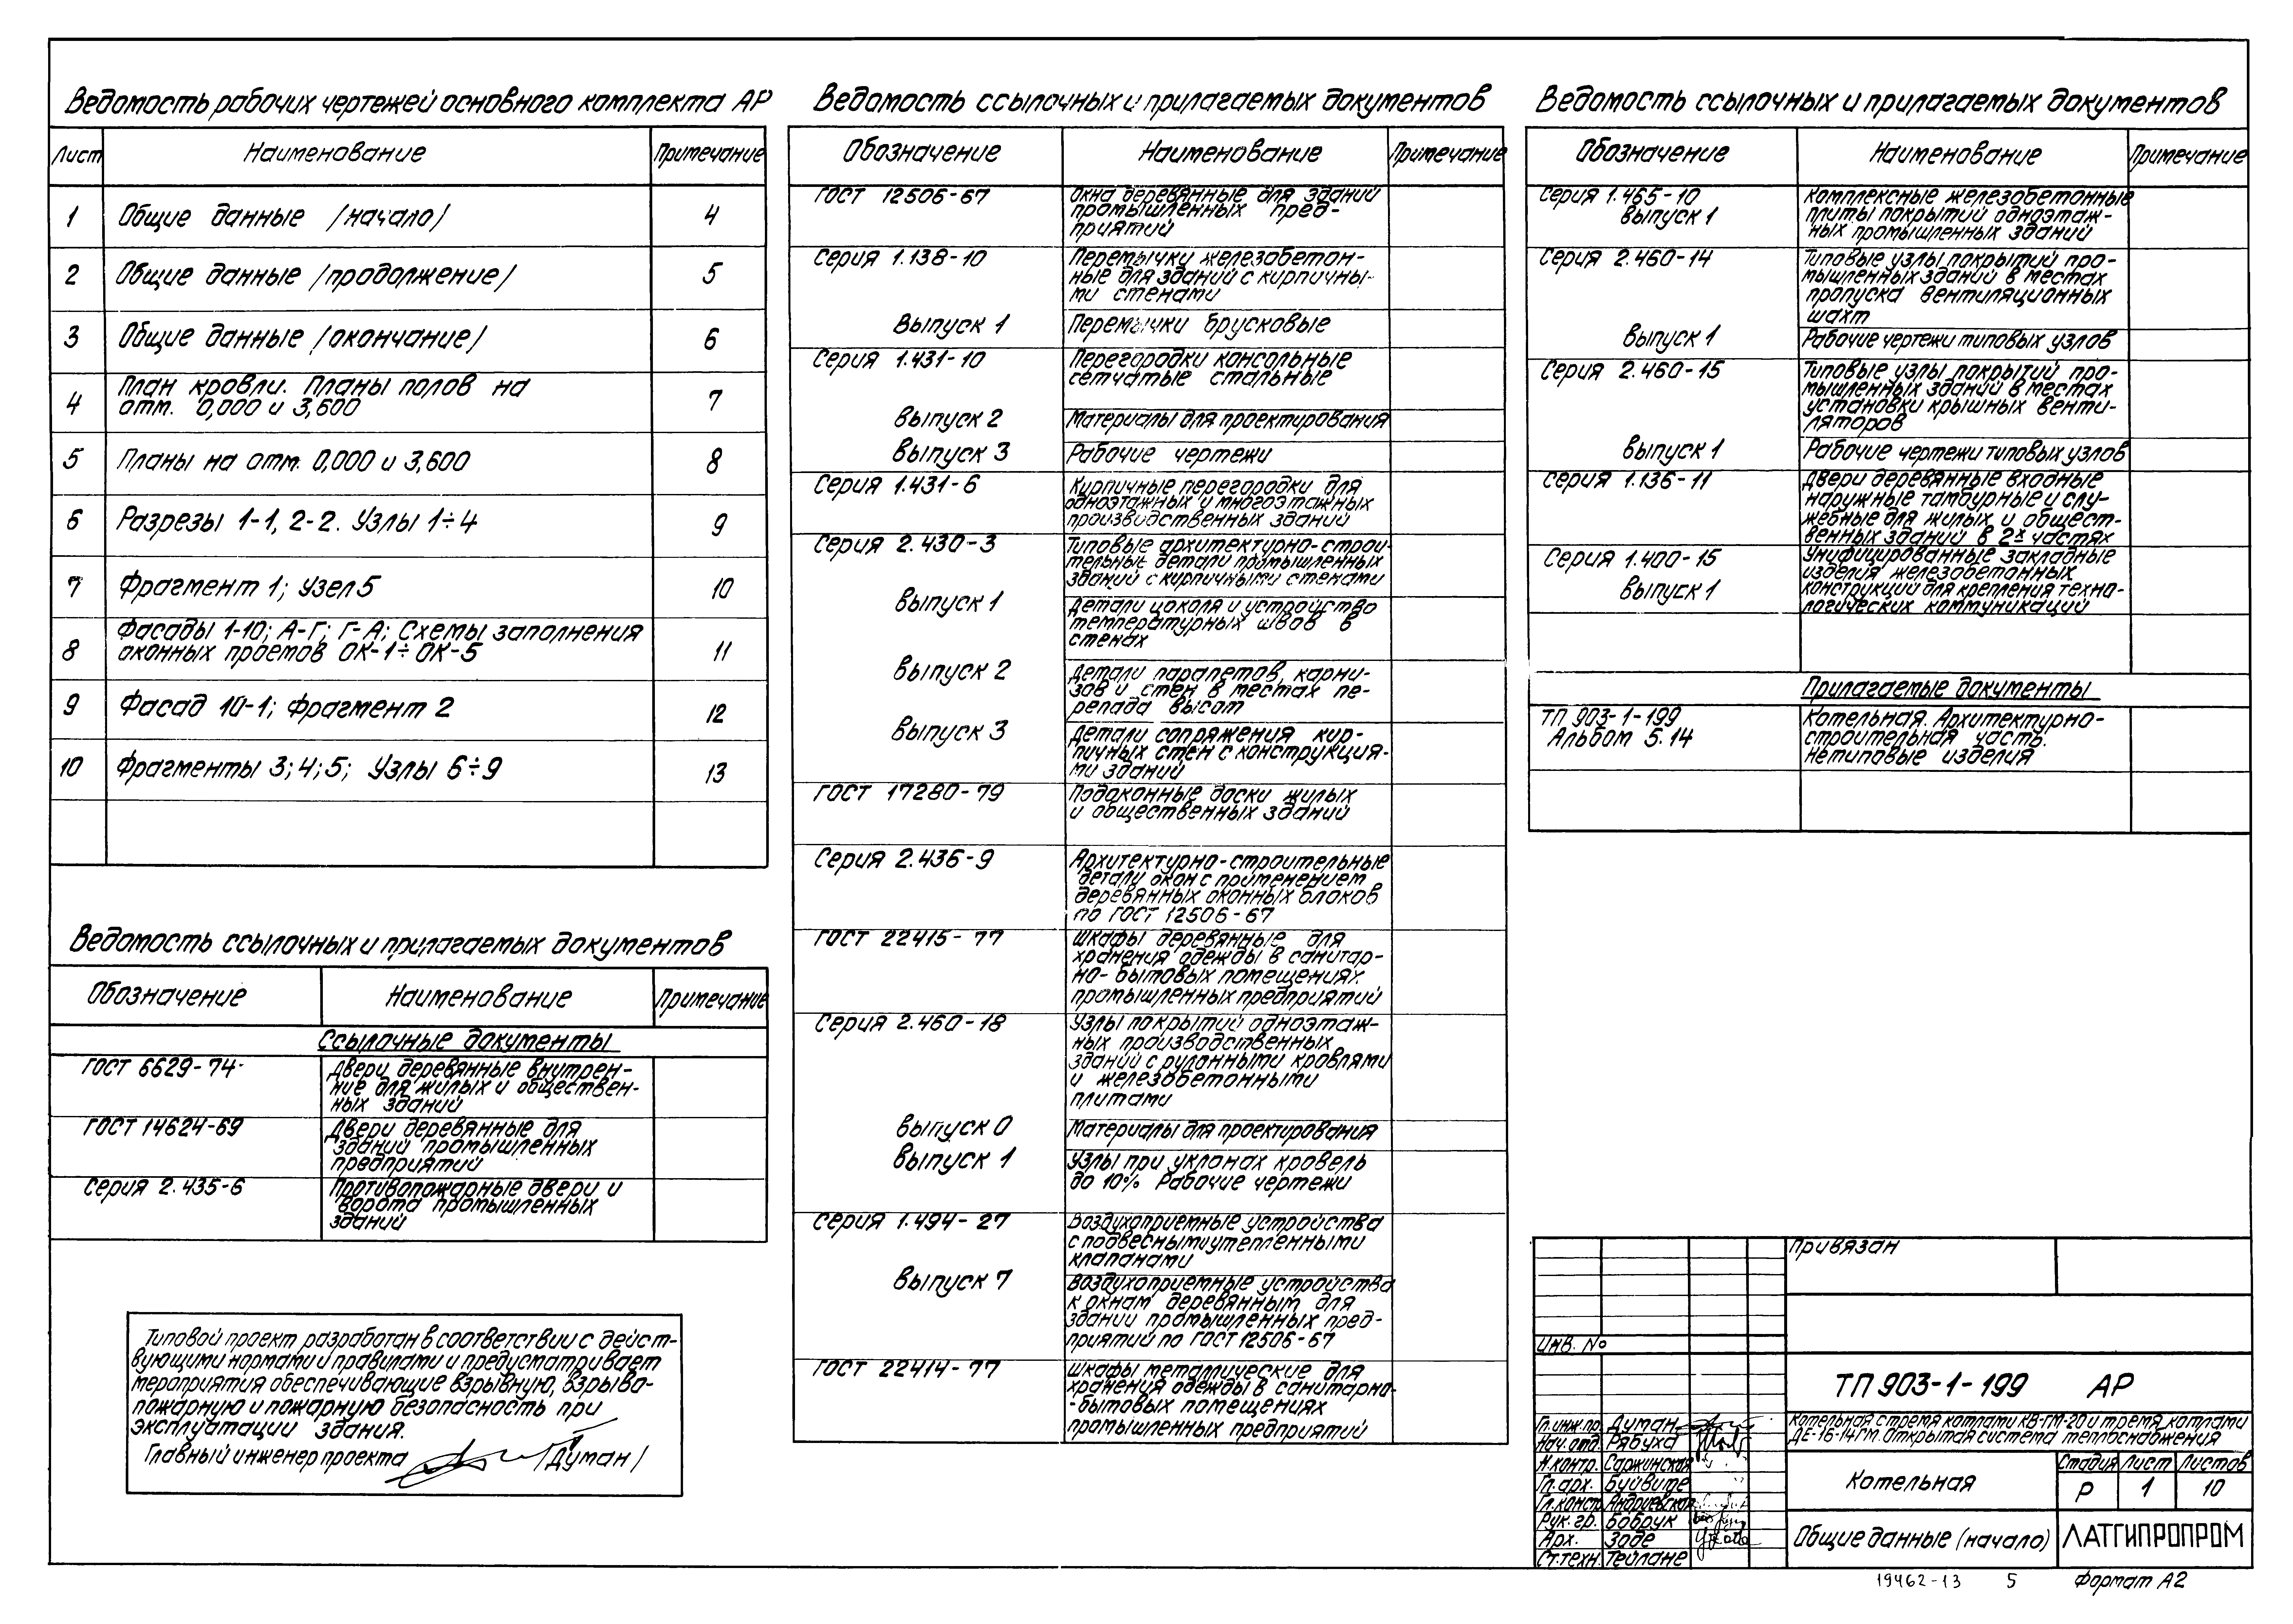 Ведомость рабочих чертежей основного комплекта АР
Лист Наименование Примечание
1 Общие данные /начало/ 4
2 Общие данные /продолжение/ 5
3 Общие данные /окончание/ 6
4 План кровли. Планы полов на
отм. 0,000 и 3,600 7
5 Планы на отм. 0,000 и 3,600 8
6 Разрезы 1-1, 2-2. Узлы 1÷4 9
7 Фрагмент 1; Узел 5 10
8 Фасады 1-10; А-Г; Г-А; Схемы заполнения
оконных проемов ОК-1÷ОК-5 11
9 Фасад 10-1; Фрагмент 2 12
10 Фрагменты 3; 4; 5; Узлы 6÷9 13
Ведомость ссылочных и прилагаемых документов
Обозначение Наименование Примечание
Ссылочные документы
ГОСТ 6629-74 Двери деревянные внутрен-
ние для жилых и обществен-
ных зданий
ГОСТ 14624-69 Двери деревянные для
зданий промышленных
предприятий
Серия 2.435-6 Противопожарные двери и
ворота промышленных
зданий
Типовой проект разработан в соответствии с дейст-
вующими нормами и правилами и предусматривает
мероприятия обеспечивающие взрывную, взрыво-
пожарную и пожарную безопасность при
эксплуатации здания.
Главный инженер проекта /Думан/
Ведомость ссылочных и прилагаемых документов
Обозначение Наименование Примечание
ГОСТ 12506-67 Окна деревянные для зданий
промышленных пред-
приятий
Серия 1.138-10 Перемычки железобетон-
ные для зданий с кирпичны-
ми стенами
Выпуск 1 Перемычки брусковые
Серия 1.431-10 Перегородки консольные
сетчатые стальные
выпуск 2 Материалы для проектирования
Выпуск 3 Рабочие чертежи
Серия 1.431-6 Кирпичные перегородки для
одноэтажных и многоэтажных
производственных зданий
Серия 2.430-3 Типовые архитектурно-строи-
тельные детали промышленных
зданий с кирпичными стенами
выпуск 1 Детали цоколя и устройство
температурных швов в
стенах
выпуск 2 Детали парапетов, карни-
зов и стен в местах пе-
репада высот
выпуск 3 Детали сопряжения кир-
пичных стен с конструкция-
ми зданий
ГОСТ 17280-79 Подоконные доски жилых
и общественных зданий
Серия 2.436-9 Архитектурно-строительные
детали окон с применением
деревянных оконных блоков
по ГОСТ 12506-67
ГОСТ 22415-77 Шкафы деревянные для
хранения одежды в санитар-
но-бытовых помещениях
промышленных предприятий
Серия 2.460-18 Узлы покрытий одноэтаж-
ных производственных
зданий с рулонными кровлями
и железобетонными
плитами
выпуск 0 Материалы для проектирования
выпуск 1 Узлы при уклонах кровель
до 10% Рабочие чертежи
Серия 1.494-27 Воздухоприемные устройства
с подвесными утепленными
клапанами
выпуск 7 Воздухоприемные устройства
к окнам деревянным для
зданий промышленных пред-
приятий по ГОСТ 12506-67
ГОСТ 22414-77 Шкафы металлические для
хранения одежды в санитарно-
-бытовых помещениях
промышленных предприятий
Ведомость ссылочных и прилагаемых документов
Обозначение Наименование Примечание
Серия 1.465-10 Комплексные железобетонные
выпуск 1 плиты покрытий одноэтаж-
ных промышленных зданий
Серия 2.460-14 Типовые узлы покрытий про-
мышленных зданий в местах
пропуска вентиляционных
шахт
выпуск 1 Рабочие чертежи типовых узлов
Серия 2.460-15 Типовые узлы покрытий про-
мышленных зданий в местах
установки крышных венти-
ляторов
выпуск 1 Рабочие чертежи типовых узлов
Серия 1.136-11 Двери деревянные входные
наружные тамбурные и слу-
жебные для жилых и общест-
венных зданий в 2х частях
Серия 1.400-15 Унифицированные закладные
изделия железобетонных
выпуск 1 конструкций для крепления техно-
логических коммуникаций
Прилагаемые документы
ТП 903-1-199 Котельная. Архитектурно-
Альбом 5.14 строительная часть.
Нетиповые изделия
Привязан
Инв. №
ТП 903-1-199 АР
Гл.инж.пр. Думан
Нач.отд. Рябуха
Н.контр. Саржинская
Гл.арх. Буйвите
Гл.констр. Андриевская
Рук.гр. Бобрук
Арх. Заде
Ст.техн. Тейлане
Котельная с тремя котлами КВ-ГМ-20 и тремя котлами
ДЕ-16-14ГМ. Открытая система теплоснабжения
Котельная
Стадия Лист Листов
Р 1 10
Общие данные (начало)
ЛАТГИПРОПРОМ
19462-13 5 Формат А2